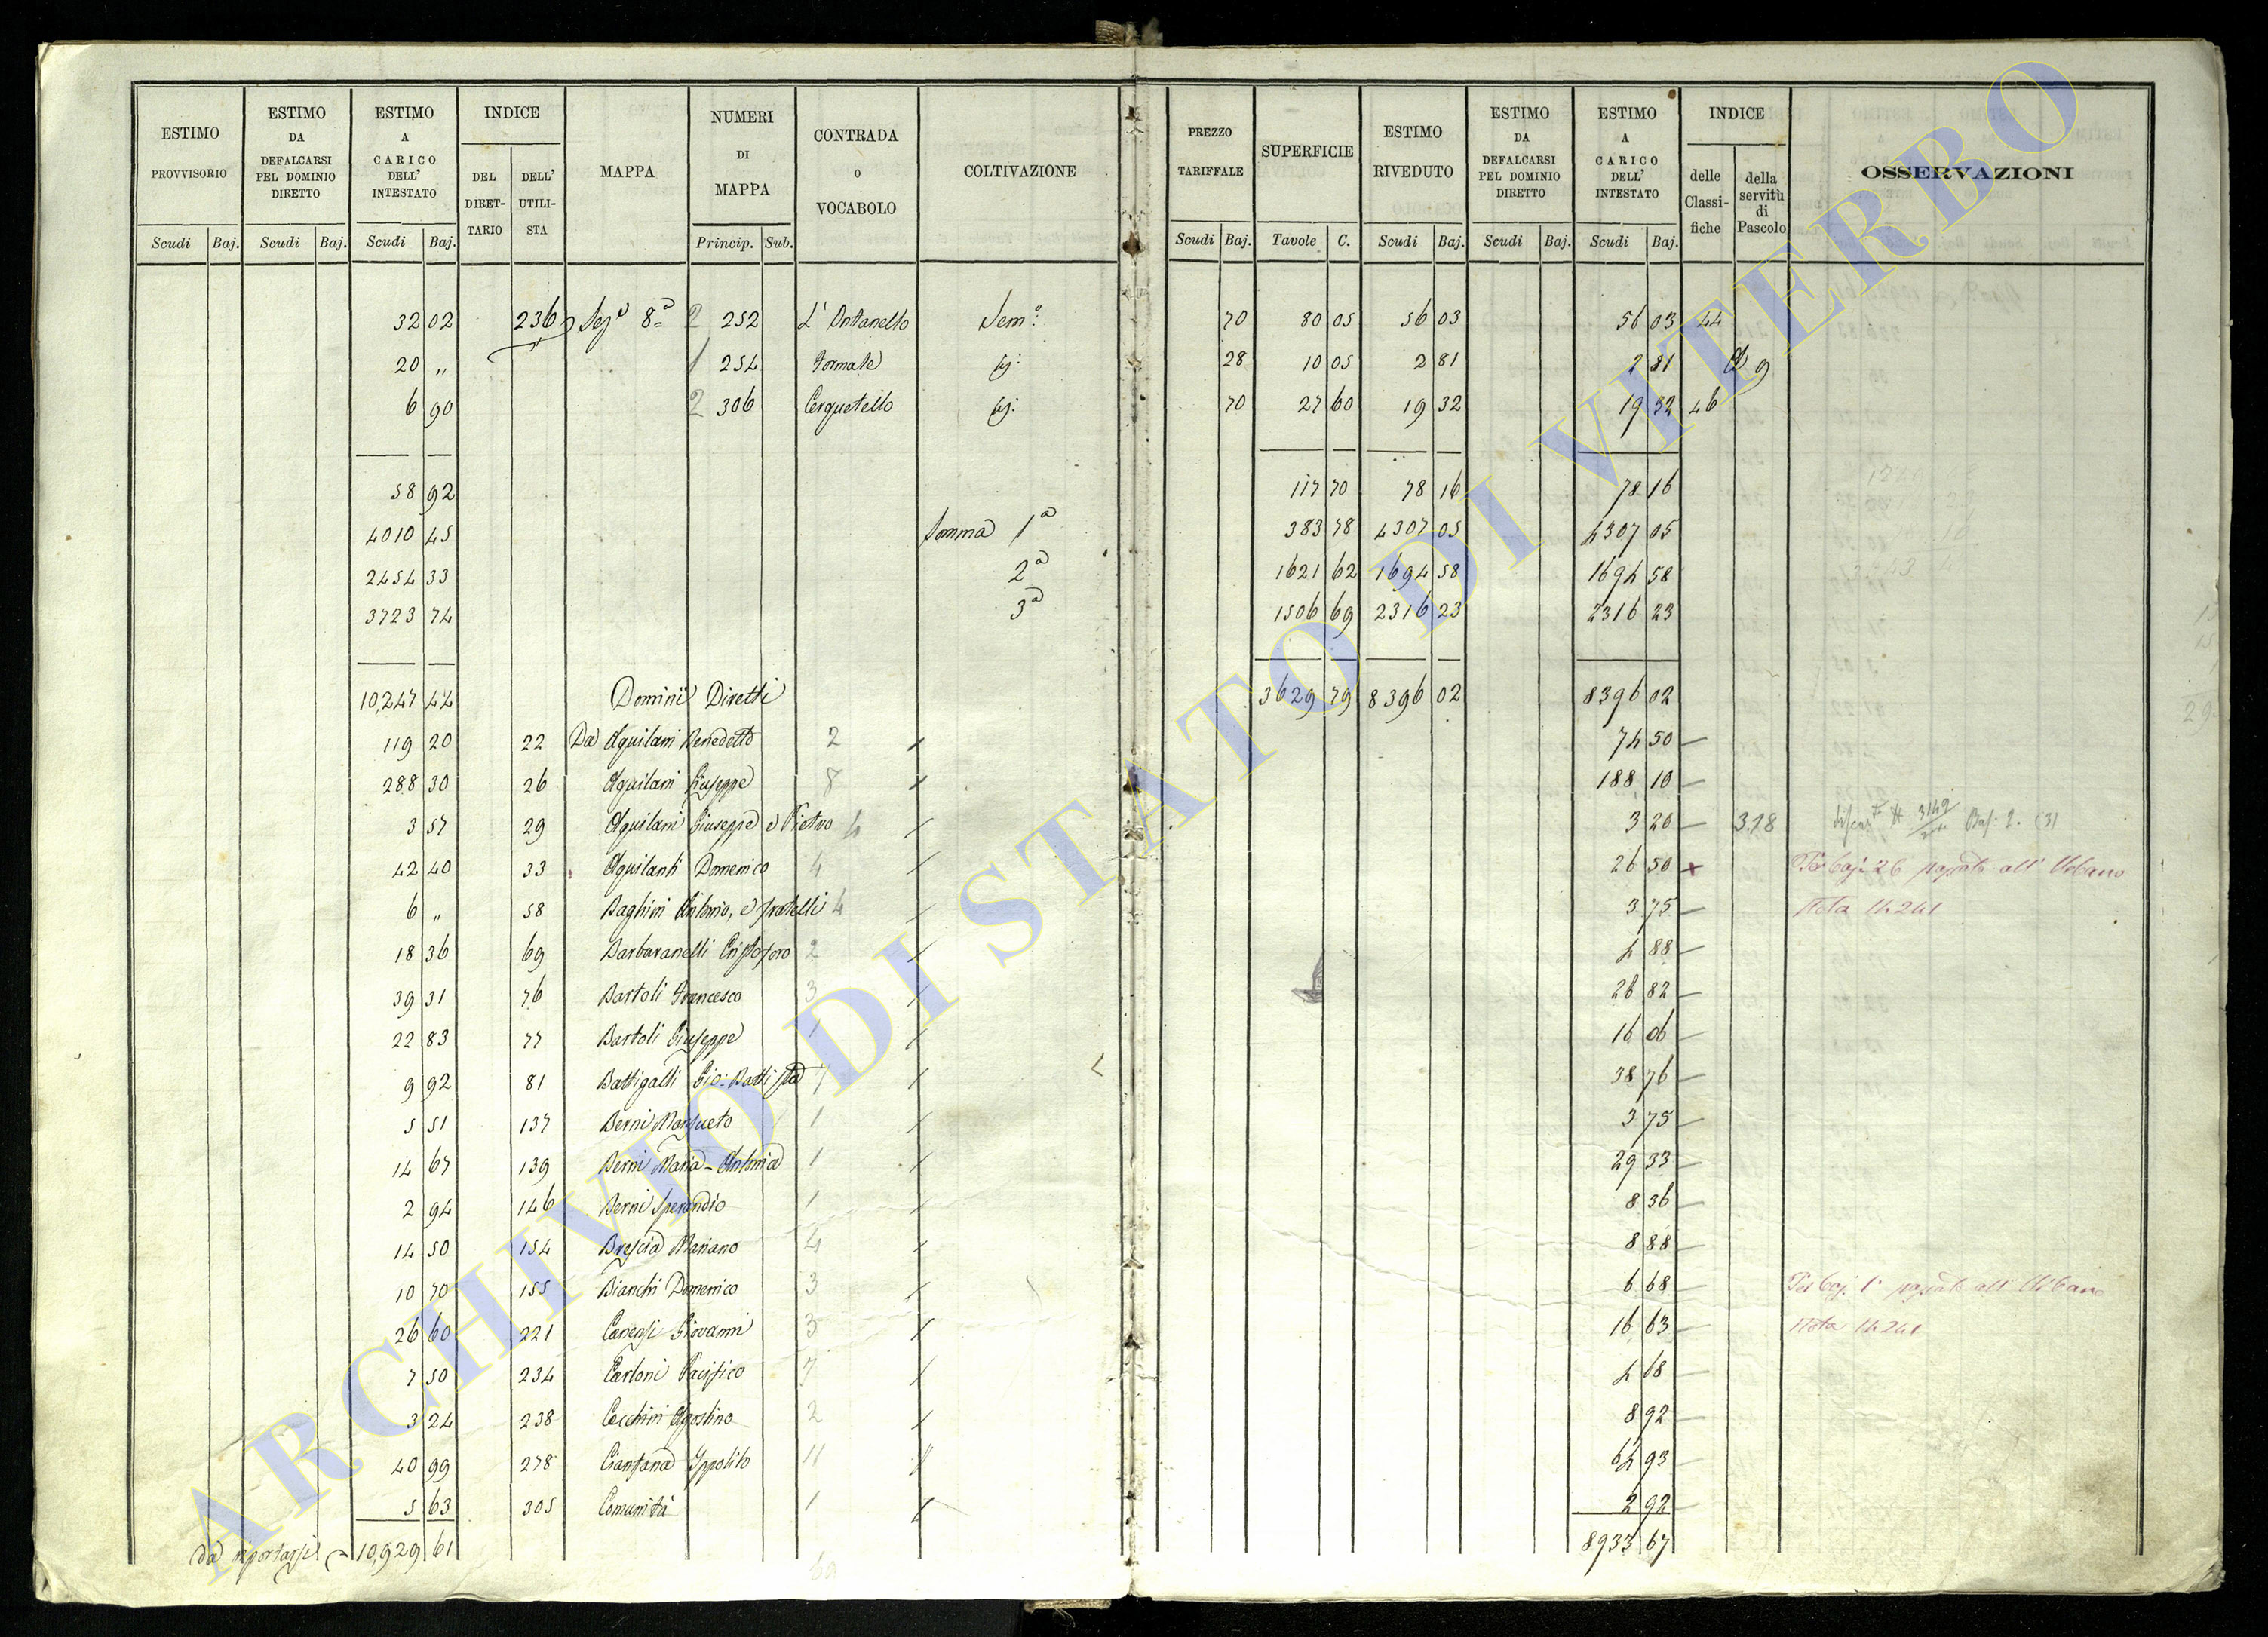 ESTIMO PROVVISORIO | ESTIMO DA DEFALCARSI PEL DOMINIO DIRETTO | ESTIMO A CARICO DELL' INTESTATO | INDICE DEL DIRETTARIO | DELL' UTILISTA | MAPPA | NUMERI DI MAPPA | CONTRADA O VOCABOLO | COLTIVAZIONE | PREZZO TARIFFALE | SUPERFICIE | ESTIMO RIVEDUTO | ESTIMO DA DEFALCARSI PEL DOMINIO DIRETTO | ESTIMO A CARICO DELL' INTESTATO | INDICE delle Classifiche | della servitù di Pascolo | OSSERVAZIONI
Scudi Baj. | Scudi Baj. | Scudi Baj. | Princip. Sub. | Scudi Baj. | Tavole C. | Scudi Baj. | Scudi Baj. | Scudi Baj.
32 02 236 Sez.e 8a 2 252 Sem.o 70 80 05 56 03 56 03 44
20 „ 1 254 Formale sj: 28 10 05 2 81 2 81 9
6 90 2 306 Cerquetello sj: 70 27 60 19 32 19 32 46
58 92 117 70 78 16 78 16
4010 45 Somma 1a 383 78 4307 05 4307 05
2454 33 2a 1621 62 1694 58 1694 58
3723 74 3a 1506 69 2316 23 2316 23
10,247 44 Dominii Diretti 3629 79 8396 02 8396 02
119 20 22 Da Aquilani Benedetto 2 74 50
288 30 26 Aquilani Giuseppe 8 188 10
3 57 29 Aquilani Giuseppe e Pietro 4 3 20 318 Baj: 2. (3)
42 40 33 Aquilanti Domenico 4 26 50 x Per baj: 26 passato all' Urbano
6 „ 58 Baghini Antonio, e fratelli 4 3 75 Nota 14241
18 36 69 Barbaranelli Cristoforo 2 4 88
39 31 76 Bartoli Francesco 3 26 82
22 83 77 Bartoli Giuseppe 1 16 06
9 92 81 Battigalli Gio: Battista 7 38 76
5 51 137 Berni Mansueto 1 3 75
14 67 139 Berni Maria-Antonia 1 29 33
2 94 146 Berni Sperandio 1 8 36
14 50 154 Brescia Mariano 4 8 88
10 70 155 Bianchi Domenico 3 6 68 Per baj. 1 passato all' Urbano
26 60 221 Canensi Giovanni 3 16 63 Nota 14241
7 50 234 Carloni Pacifico 7 4 68
3 24 238 Cecchini Agostino 2 8 92
40 99 278 Ciantana Ippolito 11 64 93
5 63 305 Comunità 1 2 92
da riportarsi 10,929 61 8933 67
ARCHIVIO DI STATO DI VITERBO